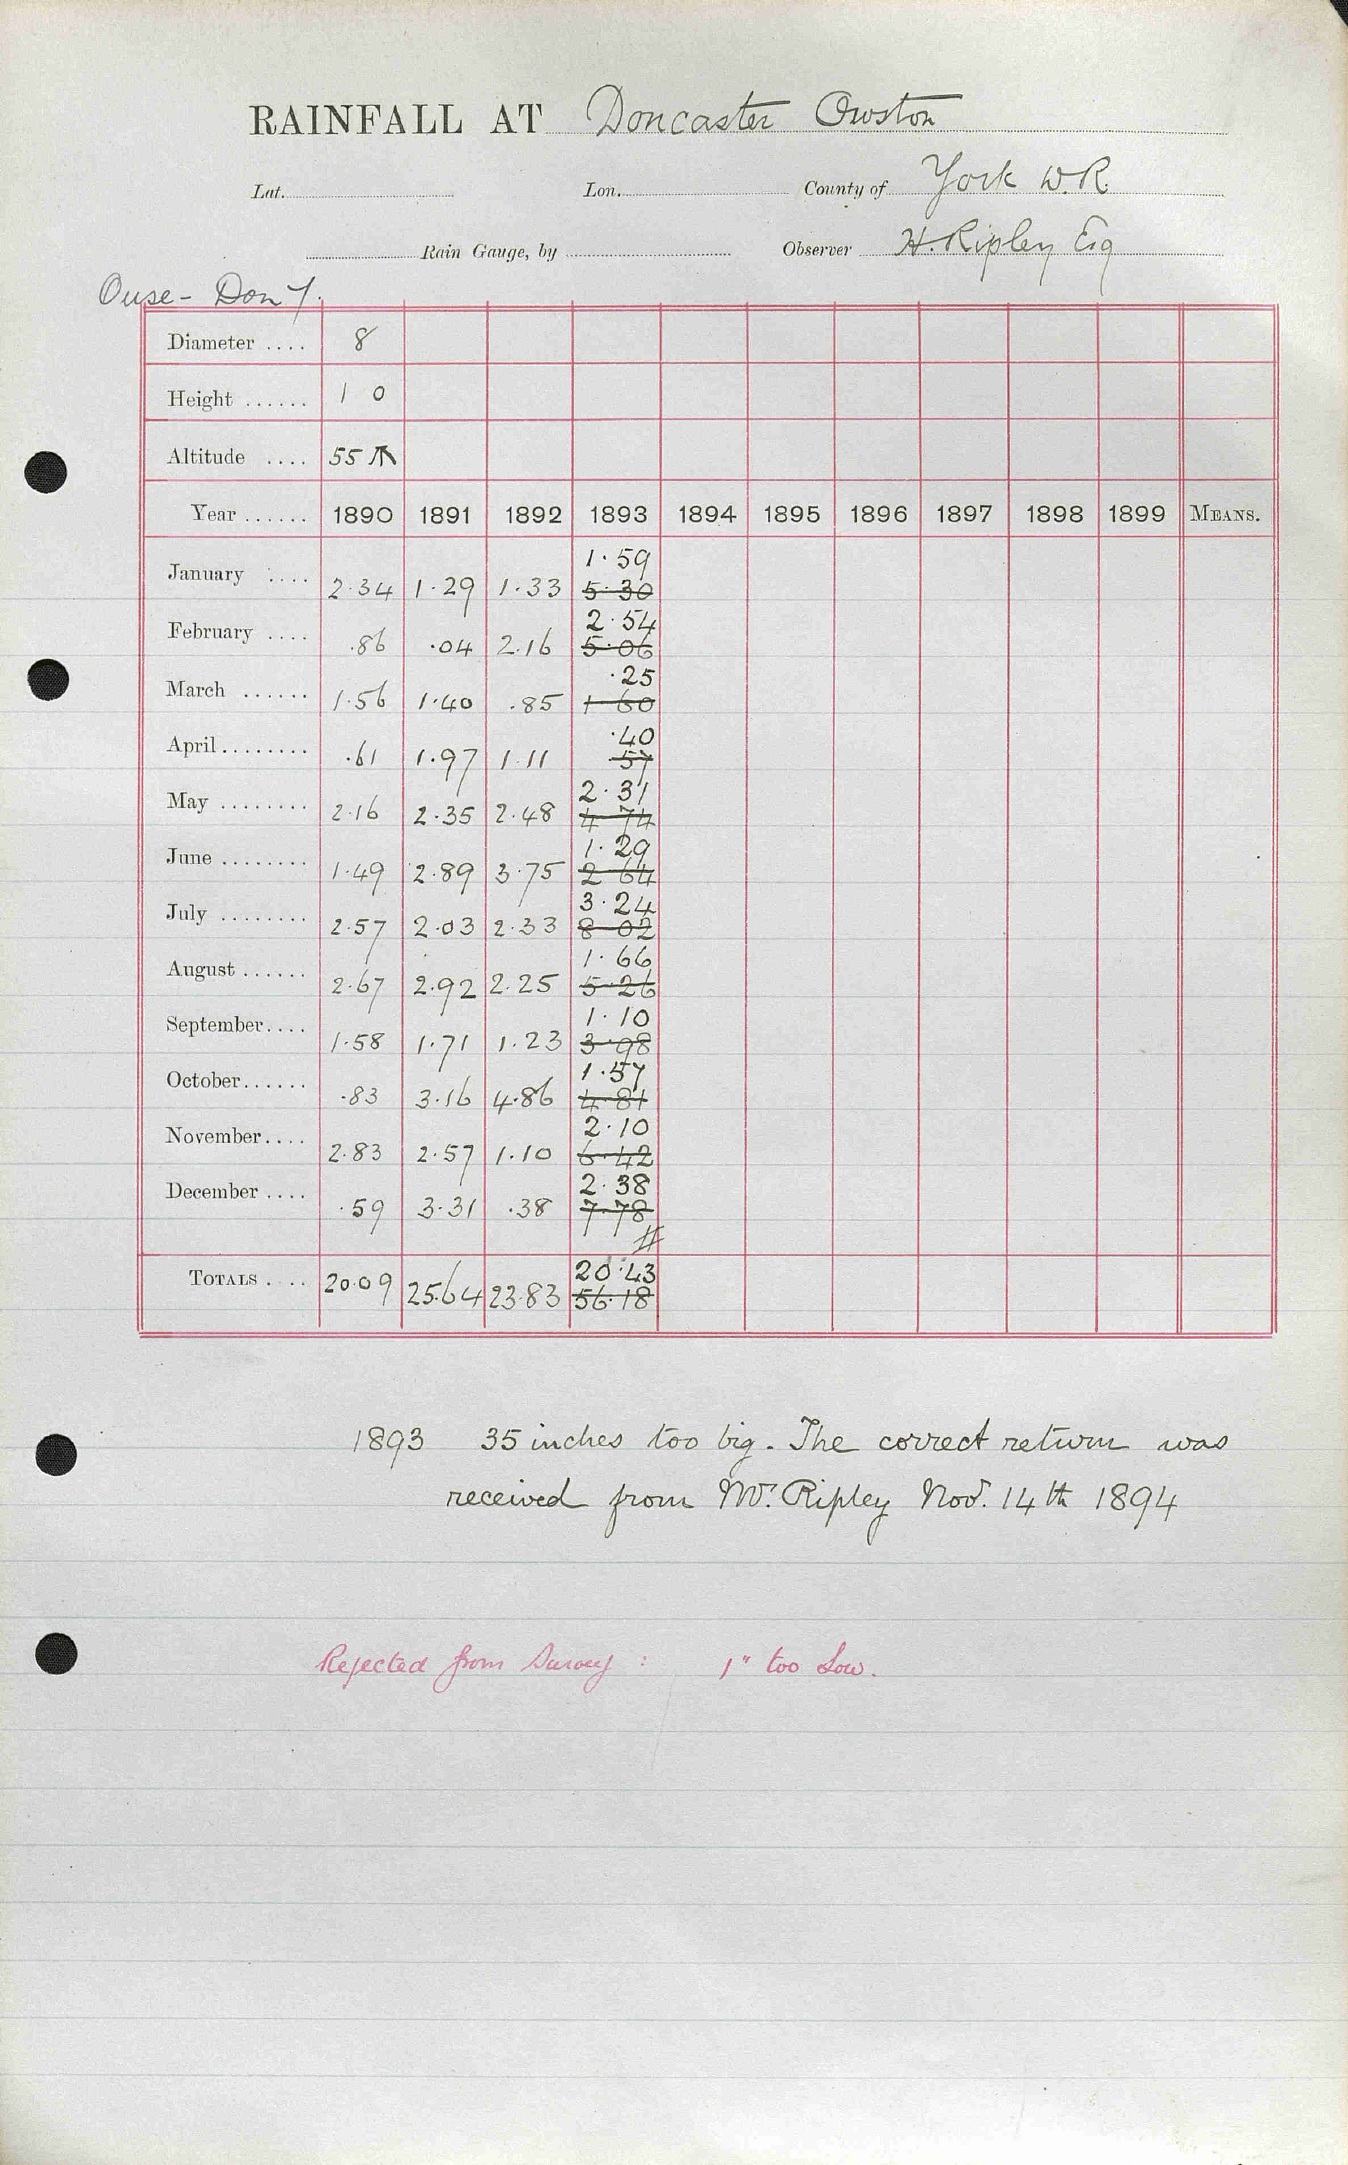 RAINFALL AT Doncaster Owston
Lat. Lon. County of York W.R.
Rain Gauge, by Observer H. Ripley Esq
Ouse - Don 7.
Diameter .... 8
Height ...... 1 0
Altitude .... 55
Year ...... 1890 1891 1892 1893 1894 1895 1896 1897 1898 1899 MEANS.
1.59
January .... 2.34 1.29 1.33 5.30
2.54
February .... .86 .04 2.16 5.06
.25
March ...... 1.56 1.40 .85 1 60
.40
April ........ .61 1.97 1.11 .57
2.31
May ........ 2.16 2.35 2.48 4 74
1.29
June ........ 1.49 2.89 3.75 2 64
3.24
July ........ 2.57 2.03 2.33 8 02
1.66
August ...... 2.67 2.92 2.25 5.26
1.10
September.... 1.58 1.71 1.23 3.98
1.57
October...... .83 3.16 4.86 4.81
2.10
November.... 2.83 2.57 1.10 6.42
2.38
December .... .59 3.31 .38 7.78
#
20.43
TOTALS .... 20.09 25.64 23.83 56.18
1893 35 inches too big. The correct return was
received from Mr. Ripley Nov. 14th 1894
Rejected from Survey : 1" too Low.